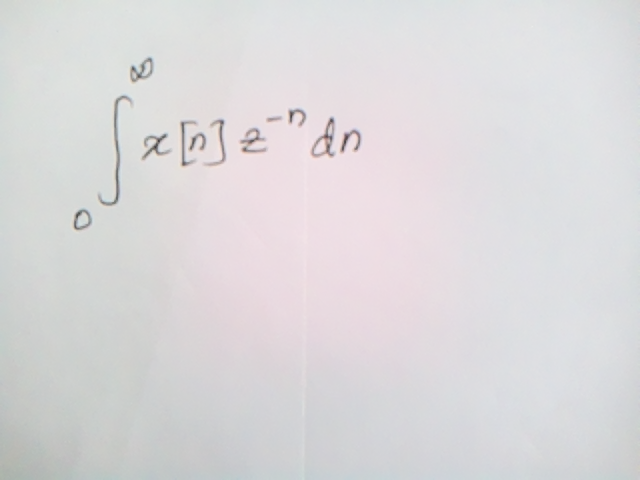 ∫₀^∞ x[n] z⁻ⁿ dn